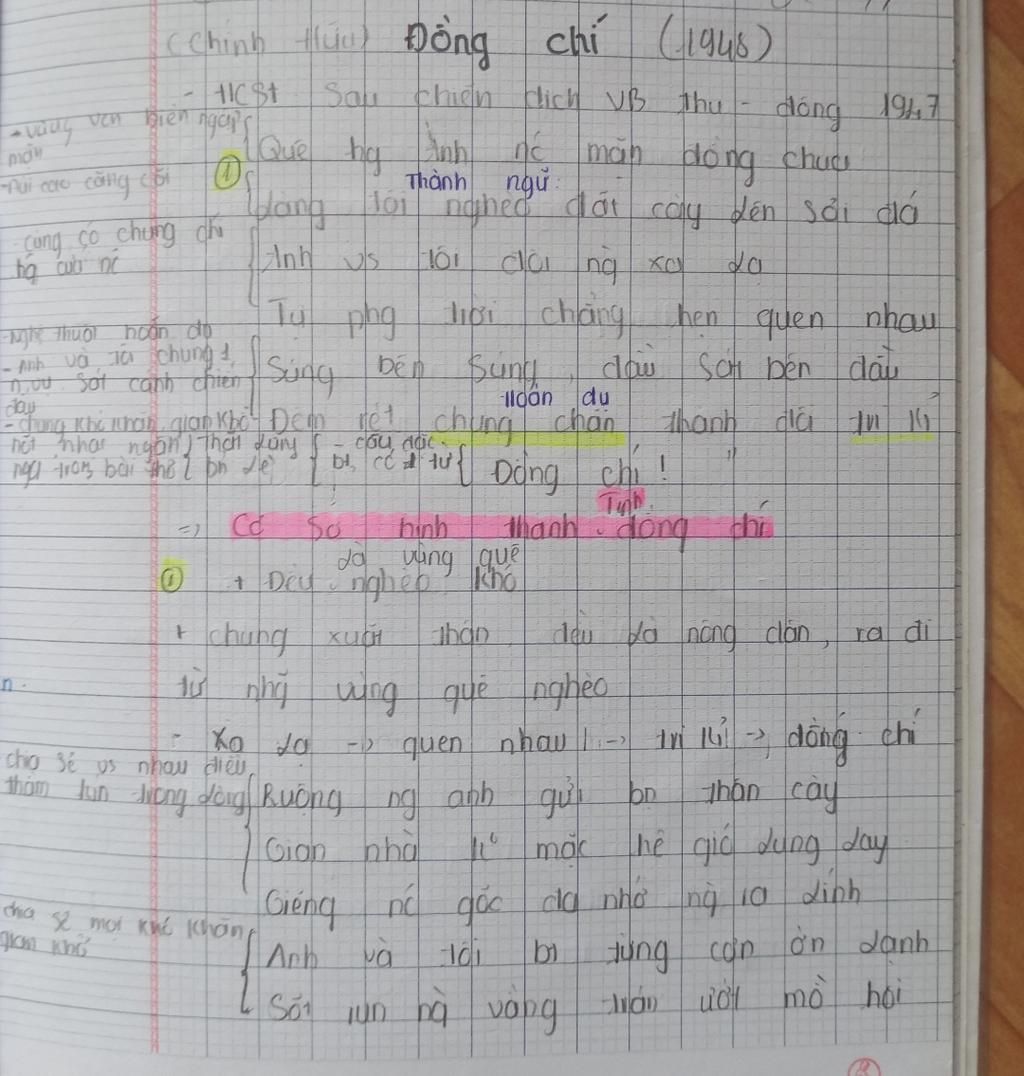 (Chính Hữu) Đồng chí (1948)
- HCST Sau chiến dịch VB thu - đông 1947
- vùng ven biển ngập
mặn
Quê hg Anh nc mặn đồng chua
①
Thành ngữ
- núi cao cằn cỗi
làng tôi nghèo đất cày lên sỏi đá
- cùng có chung
Anh vs tôi đôi ng xa lạ
Tự phg trời chẳng hẹn quen nhau
- Nghệ thuật hoán dụ
- Anh và tôi chung 1
Súng bên súng, đầu sát bên đầu
n.vụ sát cánh chiến
đấu
Hoán dụ
- chung khó khăn gian khổ
Đêm rét chung chăn thành đôi tri kỉ
- câu đặc
bt, có 2 từ
Đồng chí ! "
Tình
=> Cơ sở hình thành đồng chí
là vùng quê
① + Đều nghèo khó
+ chung xuất thân đều là nông dân, ra đi
từ nhg vùng quê nghèo
- Xa lạ -> quen nhau -> tri kỉ -> đồng chí
chia sẻ vs nhau điều
thầm kín trong lòng
Ruộng ng anh gửi bn thân cày
Gian nhà k mặc kệ gió lung lay
Giếng nc gốc đa nhớ ng ra lính
chia sẻ mọi khó khăn
gian khổ
Anh và tôi bt từng cơn ớn lạnh
Sốt run ng vầng trán ướt mồ hôi